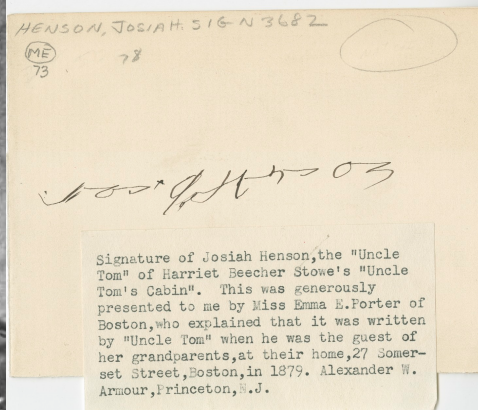 HENSON, JOSIAH. SIGN 3682
ME
73
78
Josiah Henson
Signature of Josiah Henson,the "Uncle
Tom" of Harriet Beecher Stowe's "Uncle
Tom's Cabin".  This was generously
presented to me by Miss Emma E.Porter of
Boston,who explained that it was written
by "Uncle Tom" when he was the guest of
her grandparents,at their home,27 Somer-
set Street,Boston,in 1879. Alexander W.
Armour,Princeton,N.J.